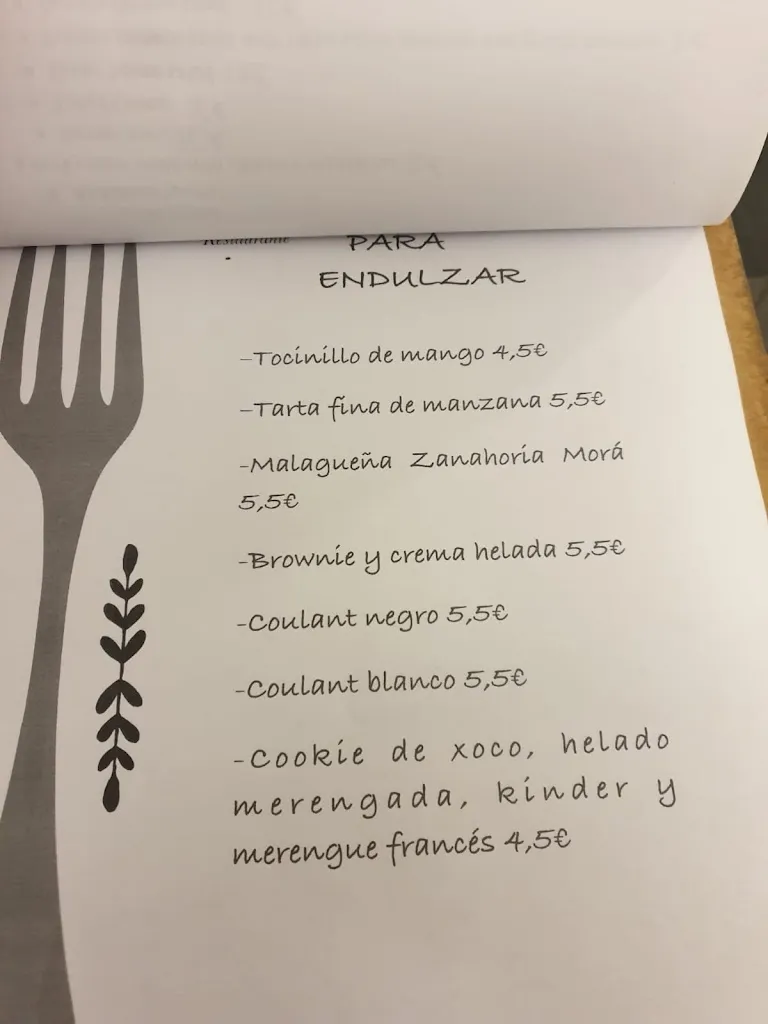 Restaurante
PARA
ENDULZAR
-Tocinillo de mango 4,5€
-Tarta fina de manzana 5,5€
-Malagueña Zanahoria Morá
5,5€
-Brownie y crema helada 5,5€
-Coulant negro 5,5€
-Coulant blanco 5,5€
-Cookie de xoco, helado
merengada, kinder y
merengue francés 4,5€